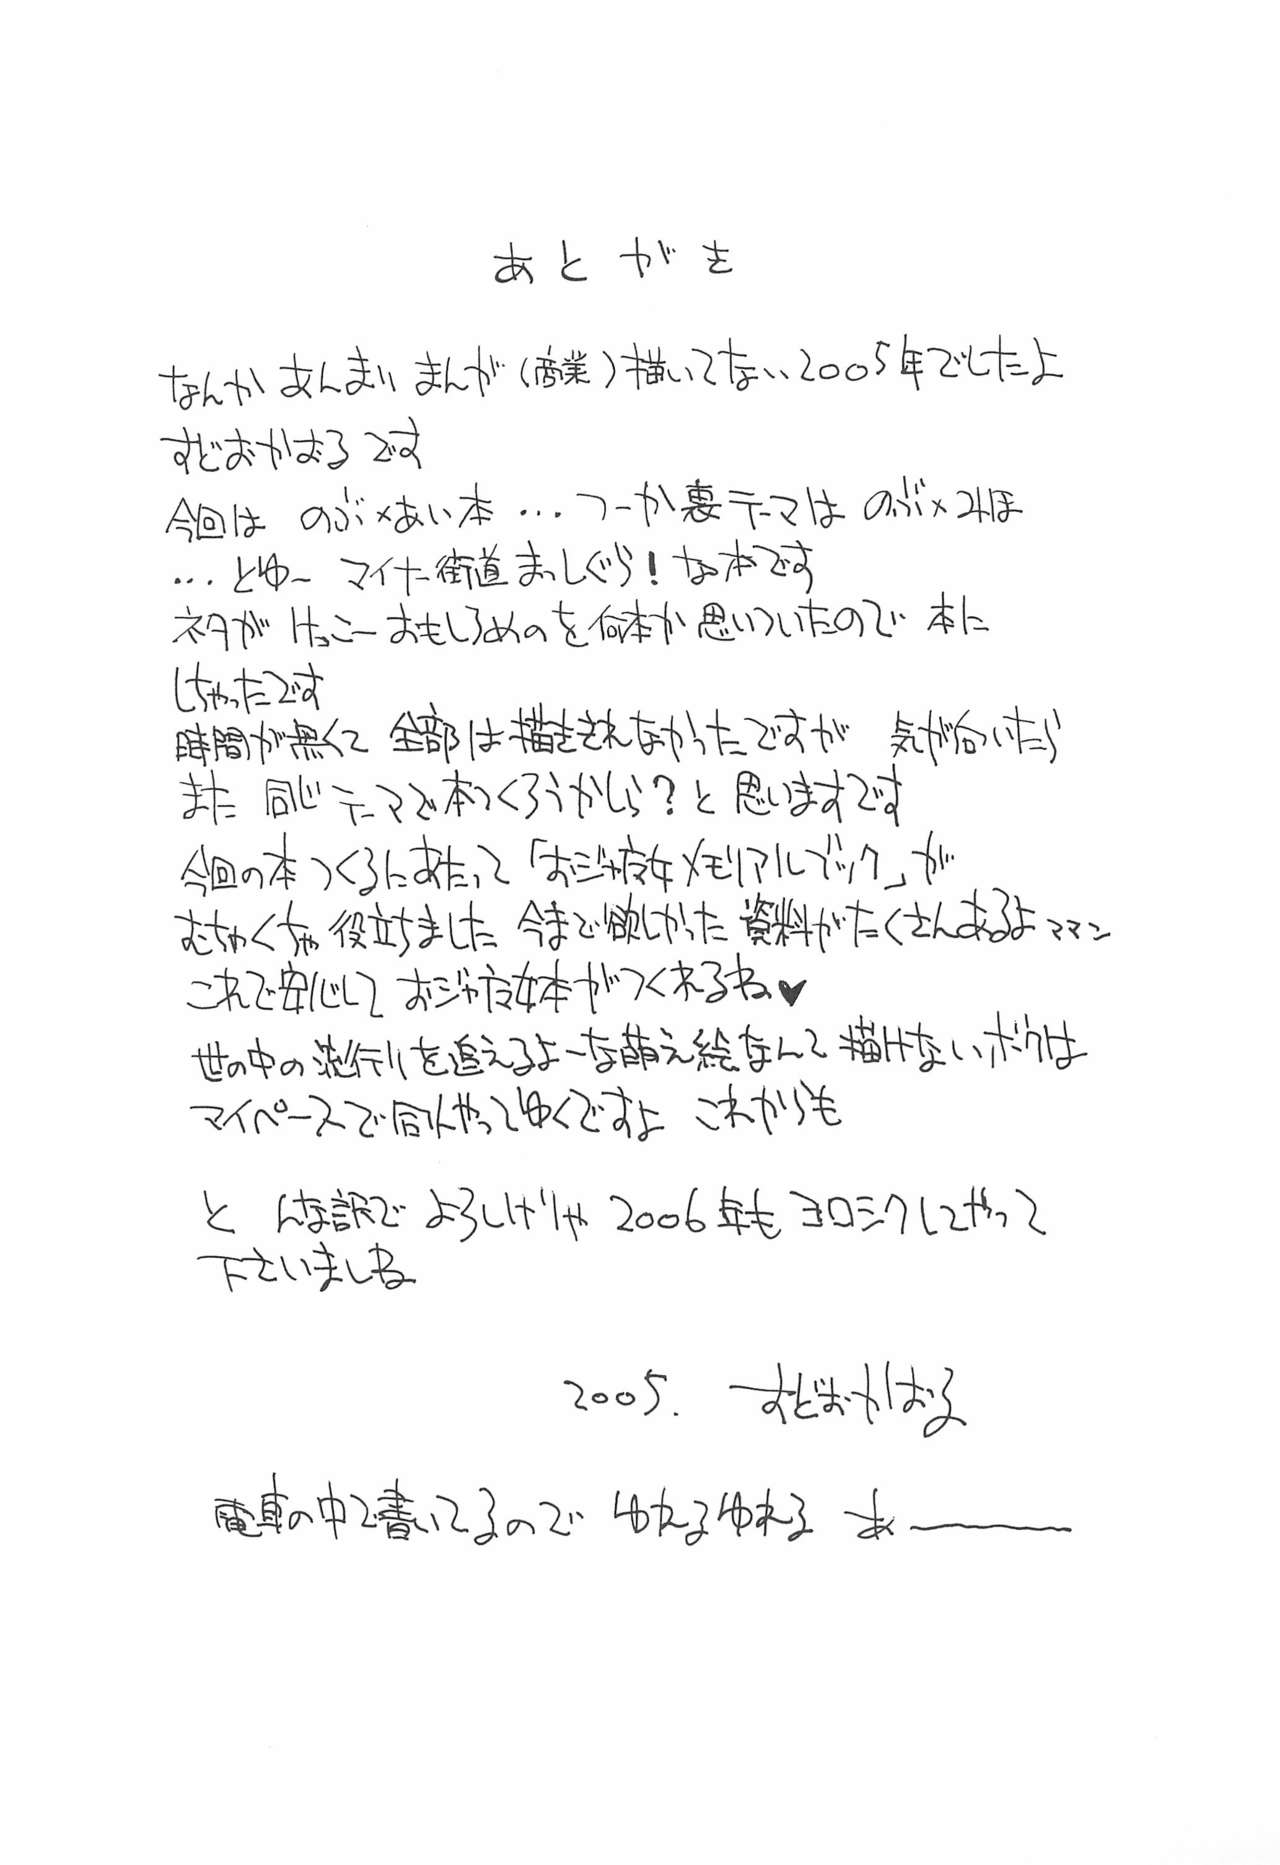 あとがき
なんか あんまり まんが(商業)描いてない2005年でしたよ
すどおかおるです
今回は のぶ×あい本 … つーか裏テーマは のぶ×みほ
… とゆ〜 マイナー街道まっしぐら!な本です
ネタが けっこーおもしろめのを何本か思いついたので 本に
しちゃったです
時間が無くて 全部は描ききれなかったですが 気が向いたら
また 同じテーマで本つくろうかしら?と 思いますです
今回の本つくるにあたって「おジャ魔女メモリアルブック」が
むちゃくちゃ役立ちました 今まで欲しかった 資料がたくさんあるよママン
これで安心して おジャ魔女本がつくれるね♥
世の中の流行りを追えるよーな萌え絵なんて 描けないボクは
マイペースで同人やってゆくですよ これからも
と んな訳で よろしげりゃ 2006年も ヨロシクしてやって
下さいましね
2005. すどおかおる
電車の中で書いてるので ゆれるゆれる あ————